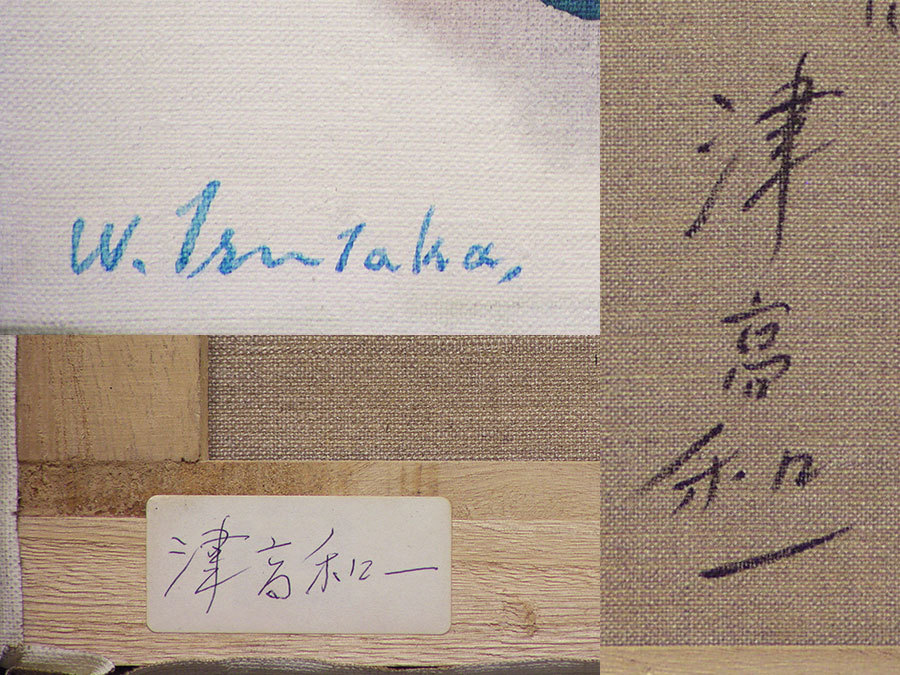 W. Tsutaka,
津高和一
津高和一